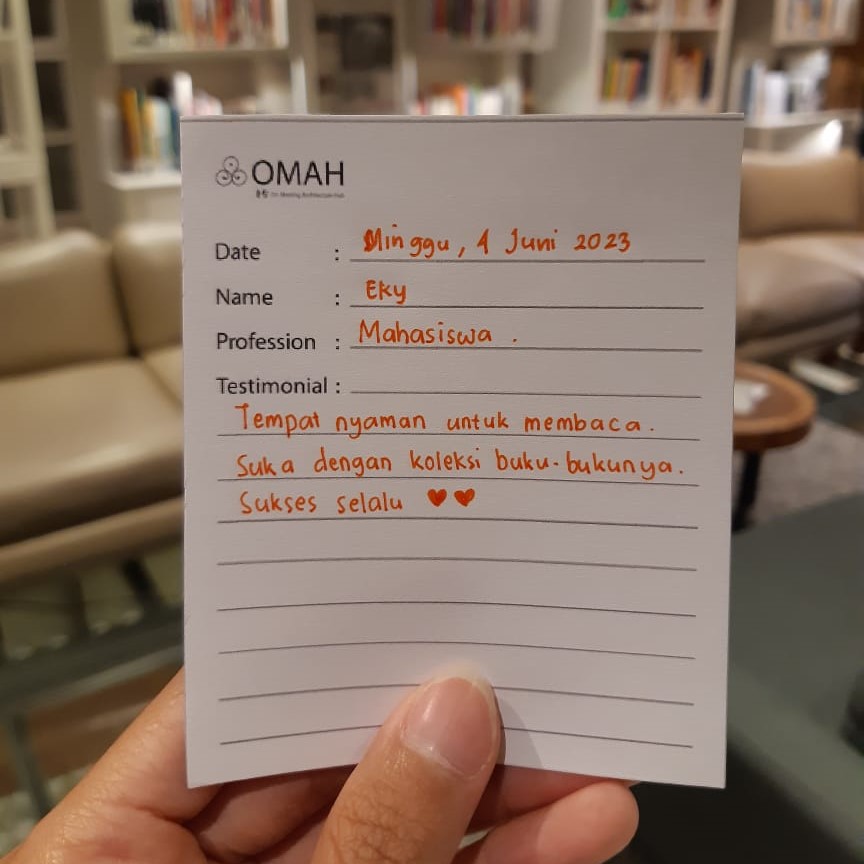 OMAH
Date : Minggu, 4 Juni 2023
Name : Eky
Profession : Mahasiswa .
Testimonial :
Tempat nyaman untuk membaca.
Suka dengan koleksi buku-bukunya.
Sukses selalu ♥♥